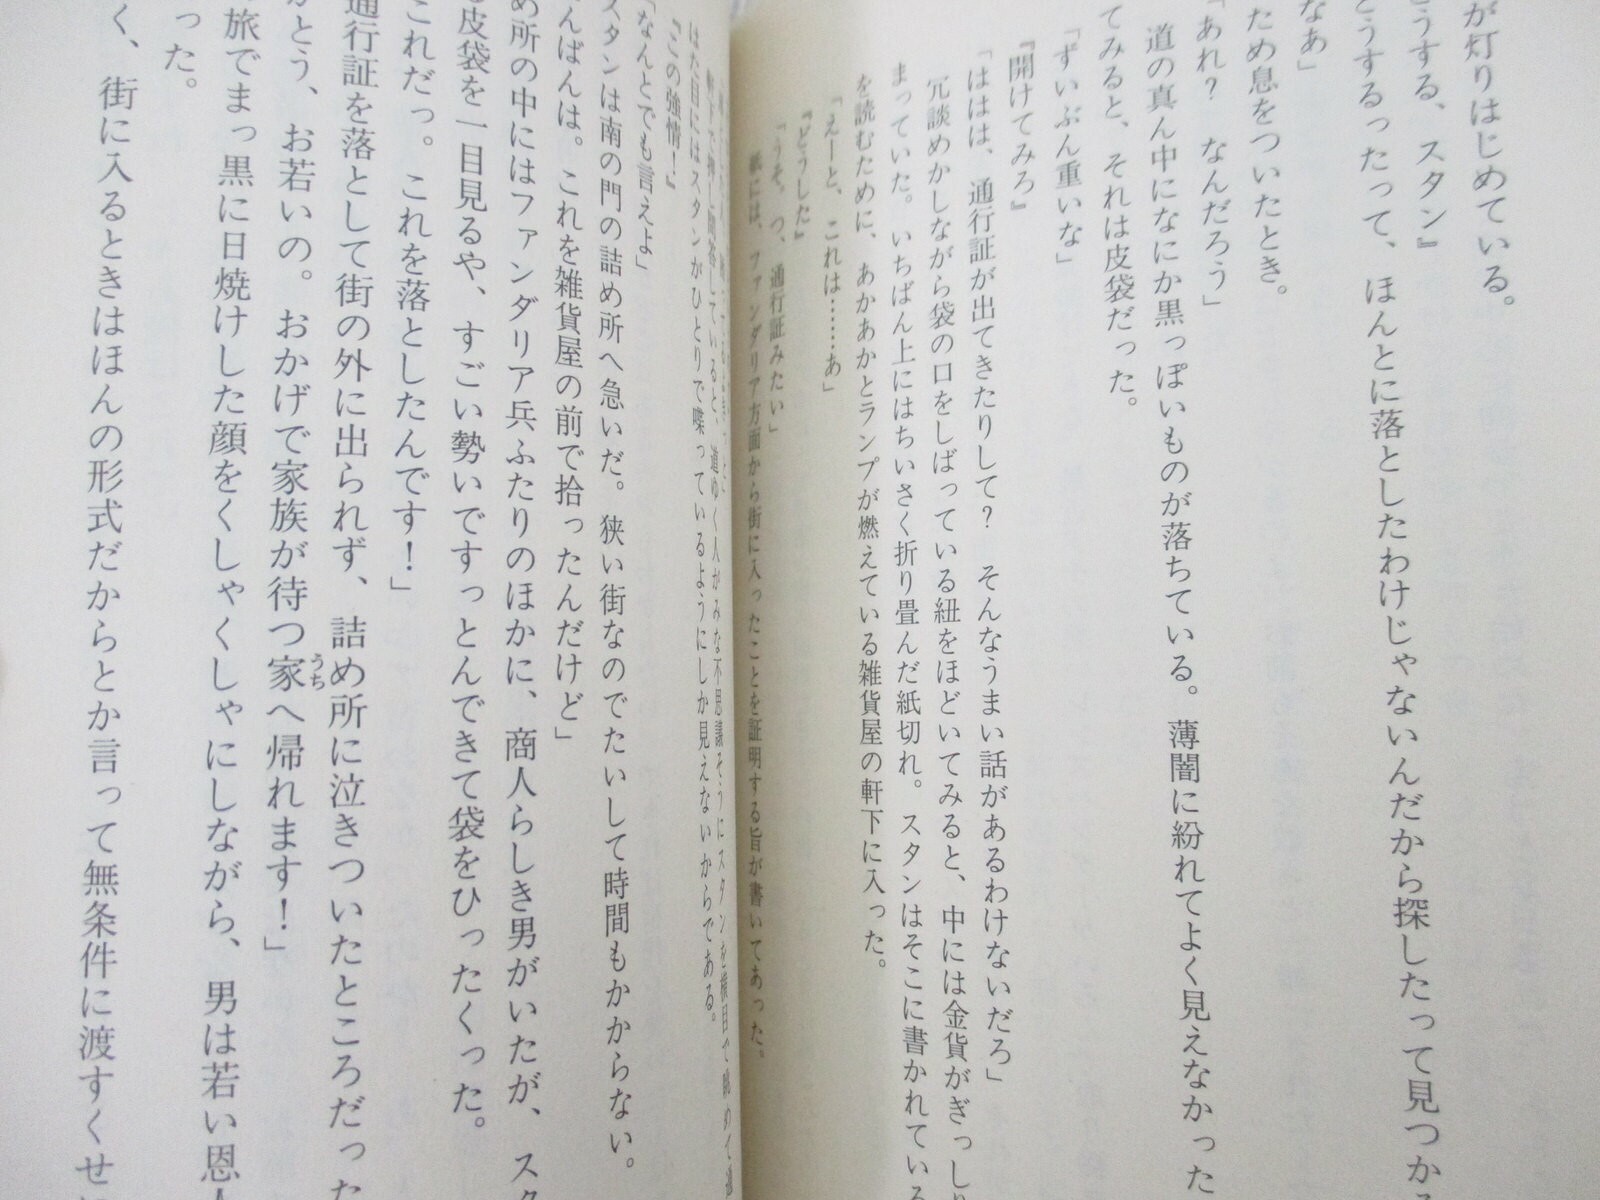 が灯りはじめている。
うする、スタン』
うするったって、ほんとに落としたわけじゃないんだから探したって見つか
なあ」
ため息をついたとき。
「あれ？　なんだろう」
道の真ん中になにか黒っぽいものが落ちている。薄闇に紛れてよく見えなかった
てみると、それは皮袋だった。
「ずいぶん重いな」
『開けてみろ』
「ははは、通行証が出てきたりして？　そんなうまい話があるわけないだろ」
冗談めかしながら袋の口をしばっている紐をほどいてみると、中には金貨がぎっしり
まっていた。いちばん上にはちいさく折り畳んだ紙切れ。スタンはそこに書かれている
を読むために、あかあかとランプが燃えている雑貨屋の軒下に入った。
「えーと、これは……あ」
『どうした』
「うそ。つ、通行証みたい」
紙には、ファンダリア方面から街に入ったことを証明する旨が書いてあった。
押し問答していると、道ゆく人がみな不思議そうにスタンを横目で眺めて通
はた目にはスタンがひとりで喋っているようにしか見えないからである。
『この強情！』
「なんとでも言えよ」
スタンは南の門の詰め所へ急いだ。狭い街なのでたいして時間もかからない。
んばんは。これを雑貨屋の前で拾ったんだけど」
め所の中にはファンダリア兵ふたりのほかに、商人らしき男がいたが、ス
皮袋を一目見るや、すごい勢いですっとんできて袋をひったくった。
これだっ。これを落としたんです！」
通行証を落として街の外に出られず、詰め所に泣きついたところだった
がとう、お若いの。おかげで家族が待つ家うちへ帰れます！」
旅でまっ黒に日焼けした顔をくしゃくしゃにしながら、男は若い恩人
った。
く、街に入るときはほんの形式だからとか言って無条件に渡すくせ